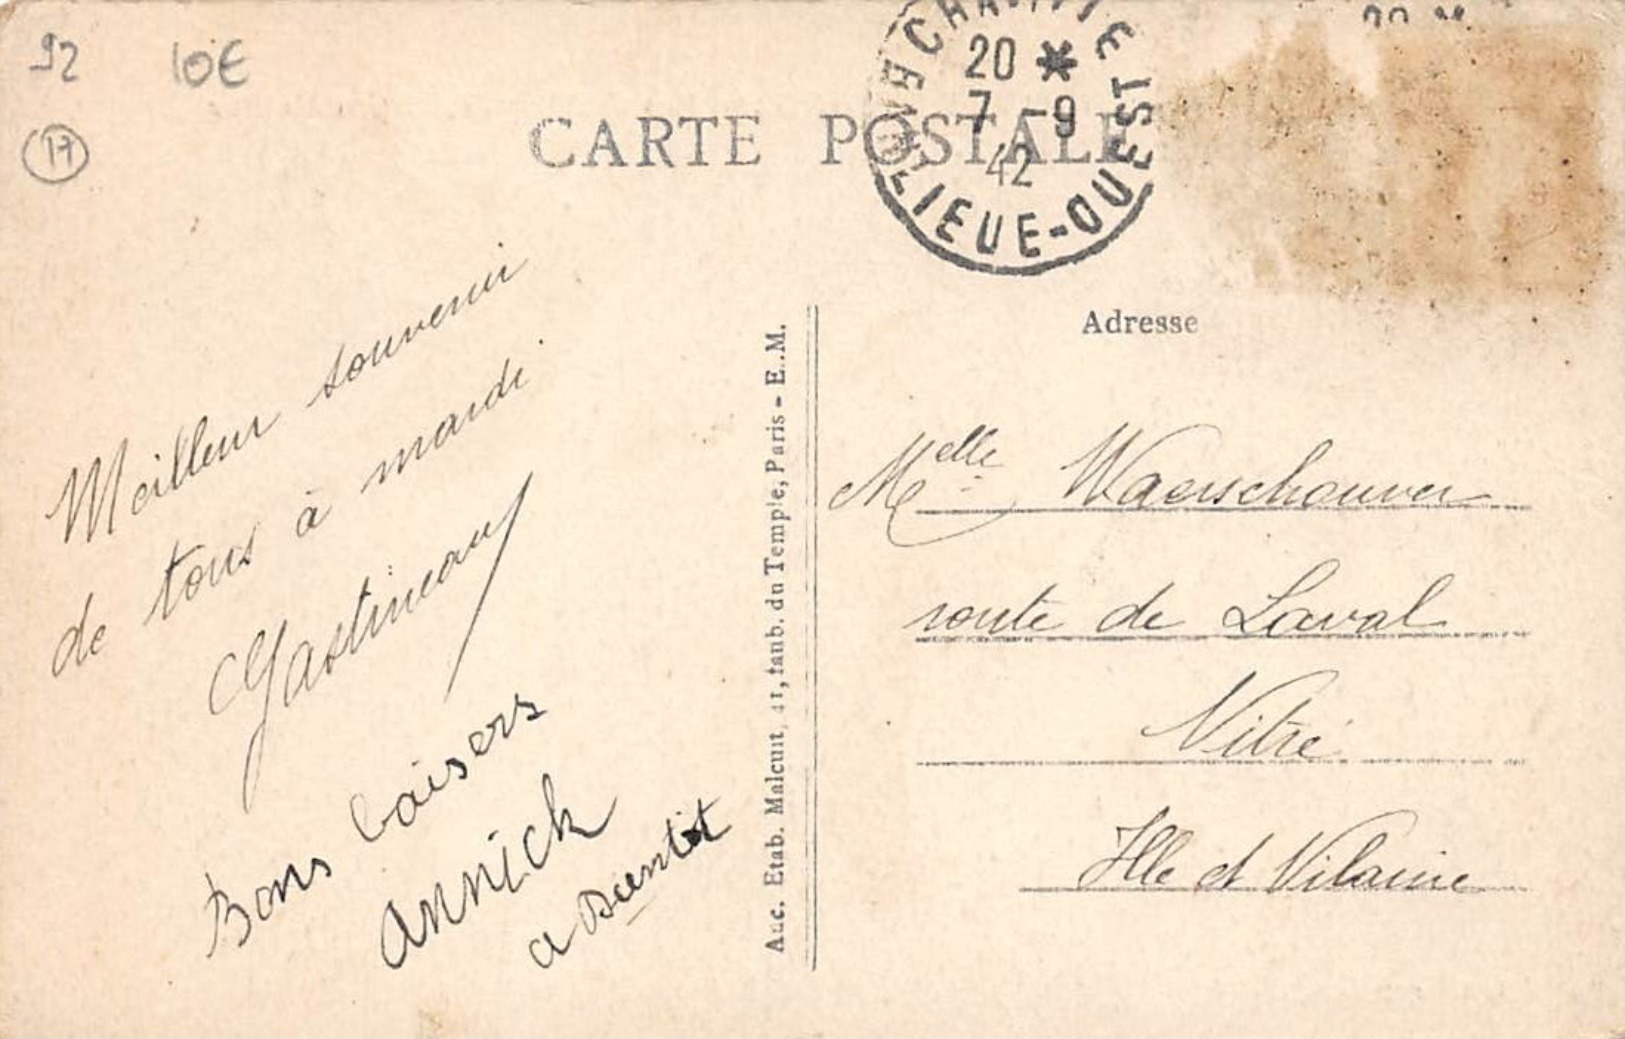 92 10€
17
CARTE POSTALE
20 *
7 -9
42
BANLIEUE-OUEST
Meilleur souvenir
de tous à mardi
Gastineau
Bons baisers
annick
a Bientôt
Anc. Etab. Malcuit, 41, faub. du Temple, Paris - E.M.
Adresse
Melle Waerschouver
route de Laval
Vitré
Ille et Vilaine